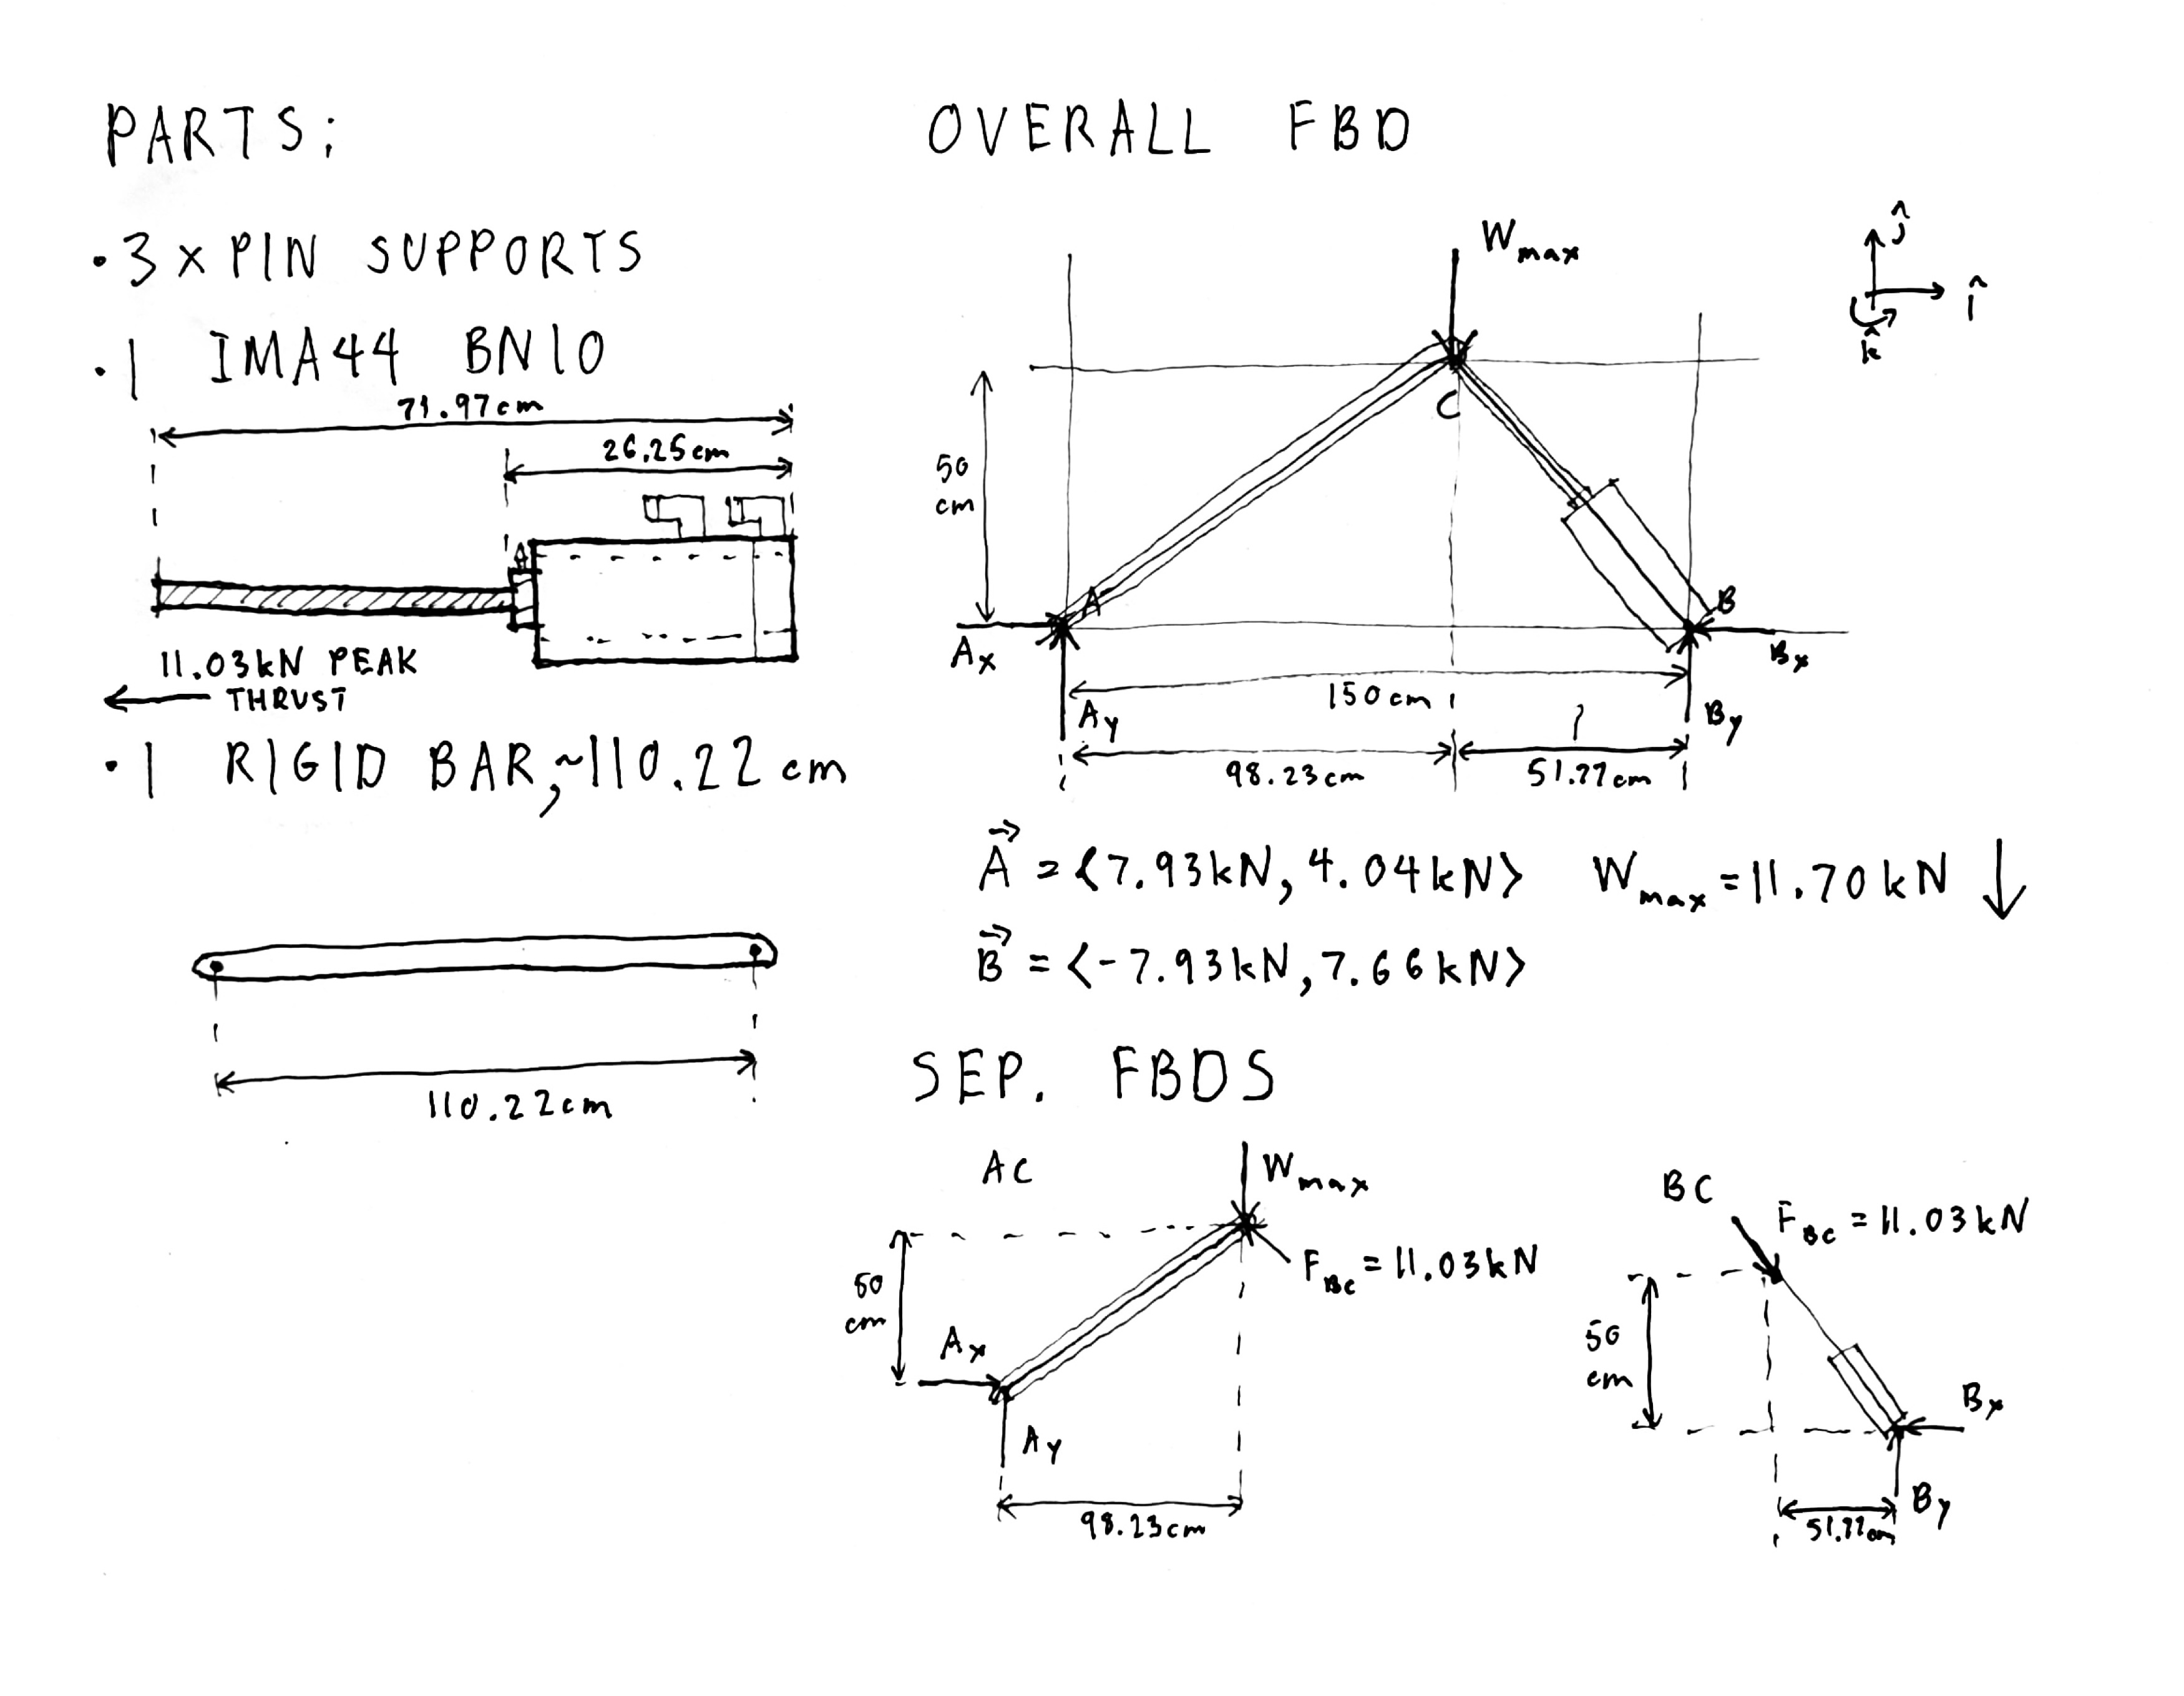 PARTS:
• 3 x PIN SUPPORTS
• 1 IMA44 BN10
71.97cm
26.25cm
11.03kN PEAK
THRUST
• 1 RIGID BAR, ~110.22 cm
110.22cm
OVERALL FBD
Wmax
ĵ
î
k̂
C
50
cm
A
B
Ax
Bx
150cm
Ay
By
?
98.23cm
51.77cm
A⃗ = <7.93kN, 4.04kN> Wmax = 11.70kN ↓
B⃗ = <-7.93kN, 7.66kN>
SEP. FBDS
AC
Wmax
FBC = 11.03kN
50
cm
Ax
Ay
98.23cm
BC
FBC = 11.03kN
50
cm
Bx
By
51.77cm